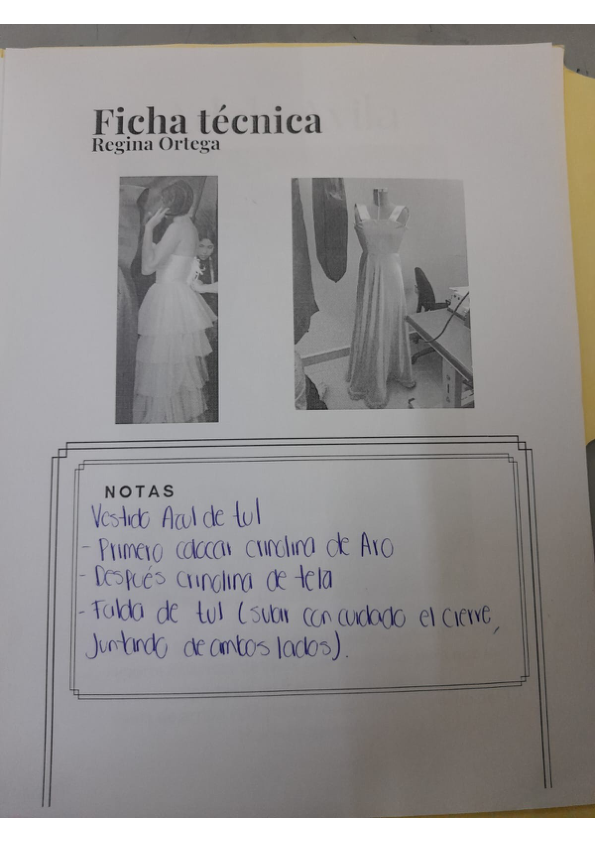 Ficha técnica
Regina Ortega
NOTAS
Vestido Azul de tul
- Primero colocar crinolina de Aro
- Después crinolina de tela
- Falda de tul (subir con cuidado el cierre,
juntando de ambos lados).